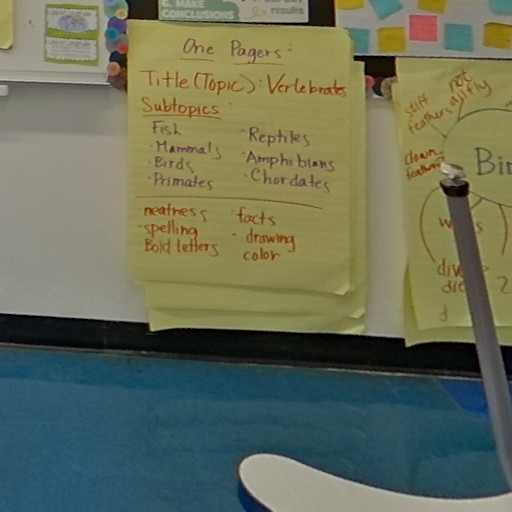 MAKE
CONCLUSIONS
results
One Pagers:
Title (Topic): Vertebrates
Subtopics:
Fish
· Mammals
· Birds
· Primates
· Reptiles
· Amphibians
· Chordates
· neatness
· spelling
Bold letters
· facts
· drawing
color
stiff
feathers
not
all fly
down
feathers
Bir